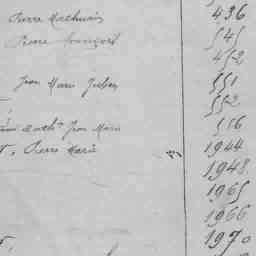 Pierre Mathurin 436
Pierre François 545
452
Jean Marie Julien 551
552
Jean Marie 516
Pierre Marie 1944
1948
1965
1966
1970